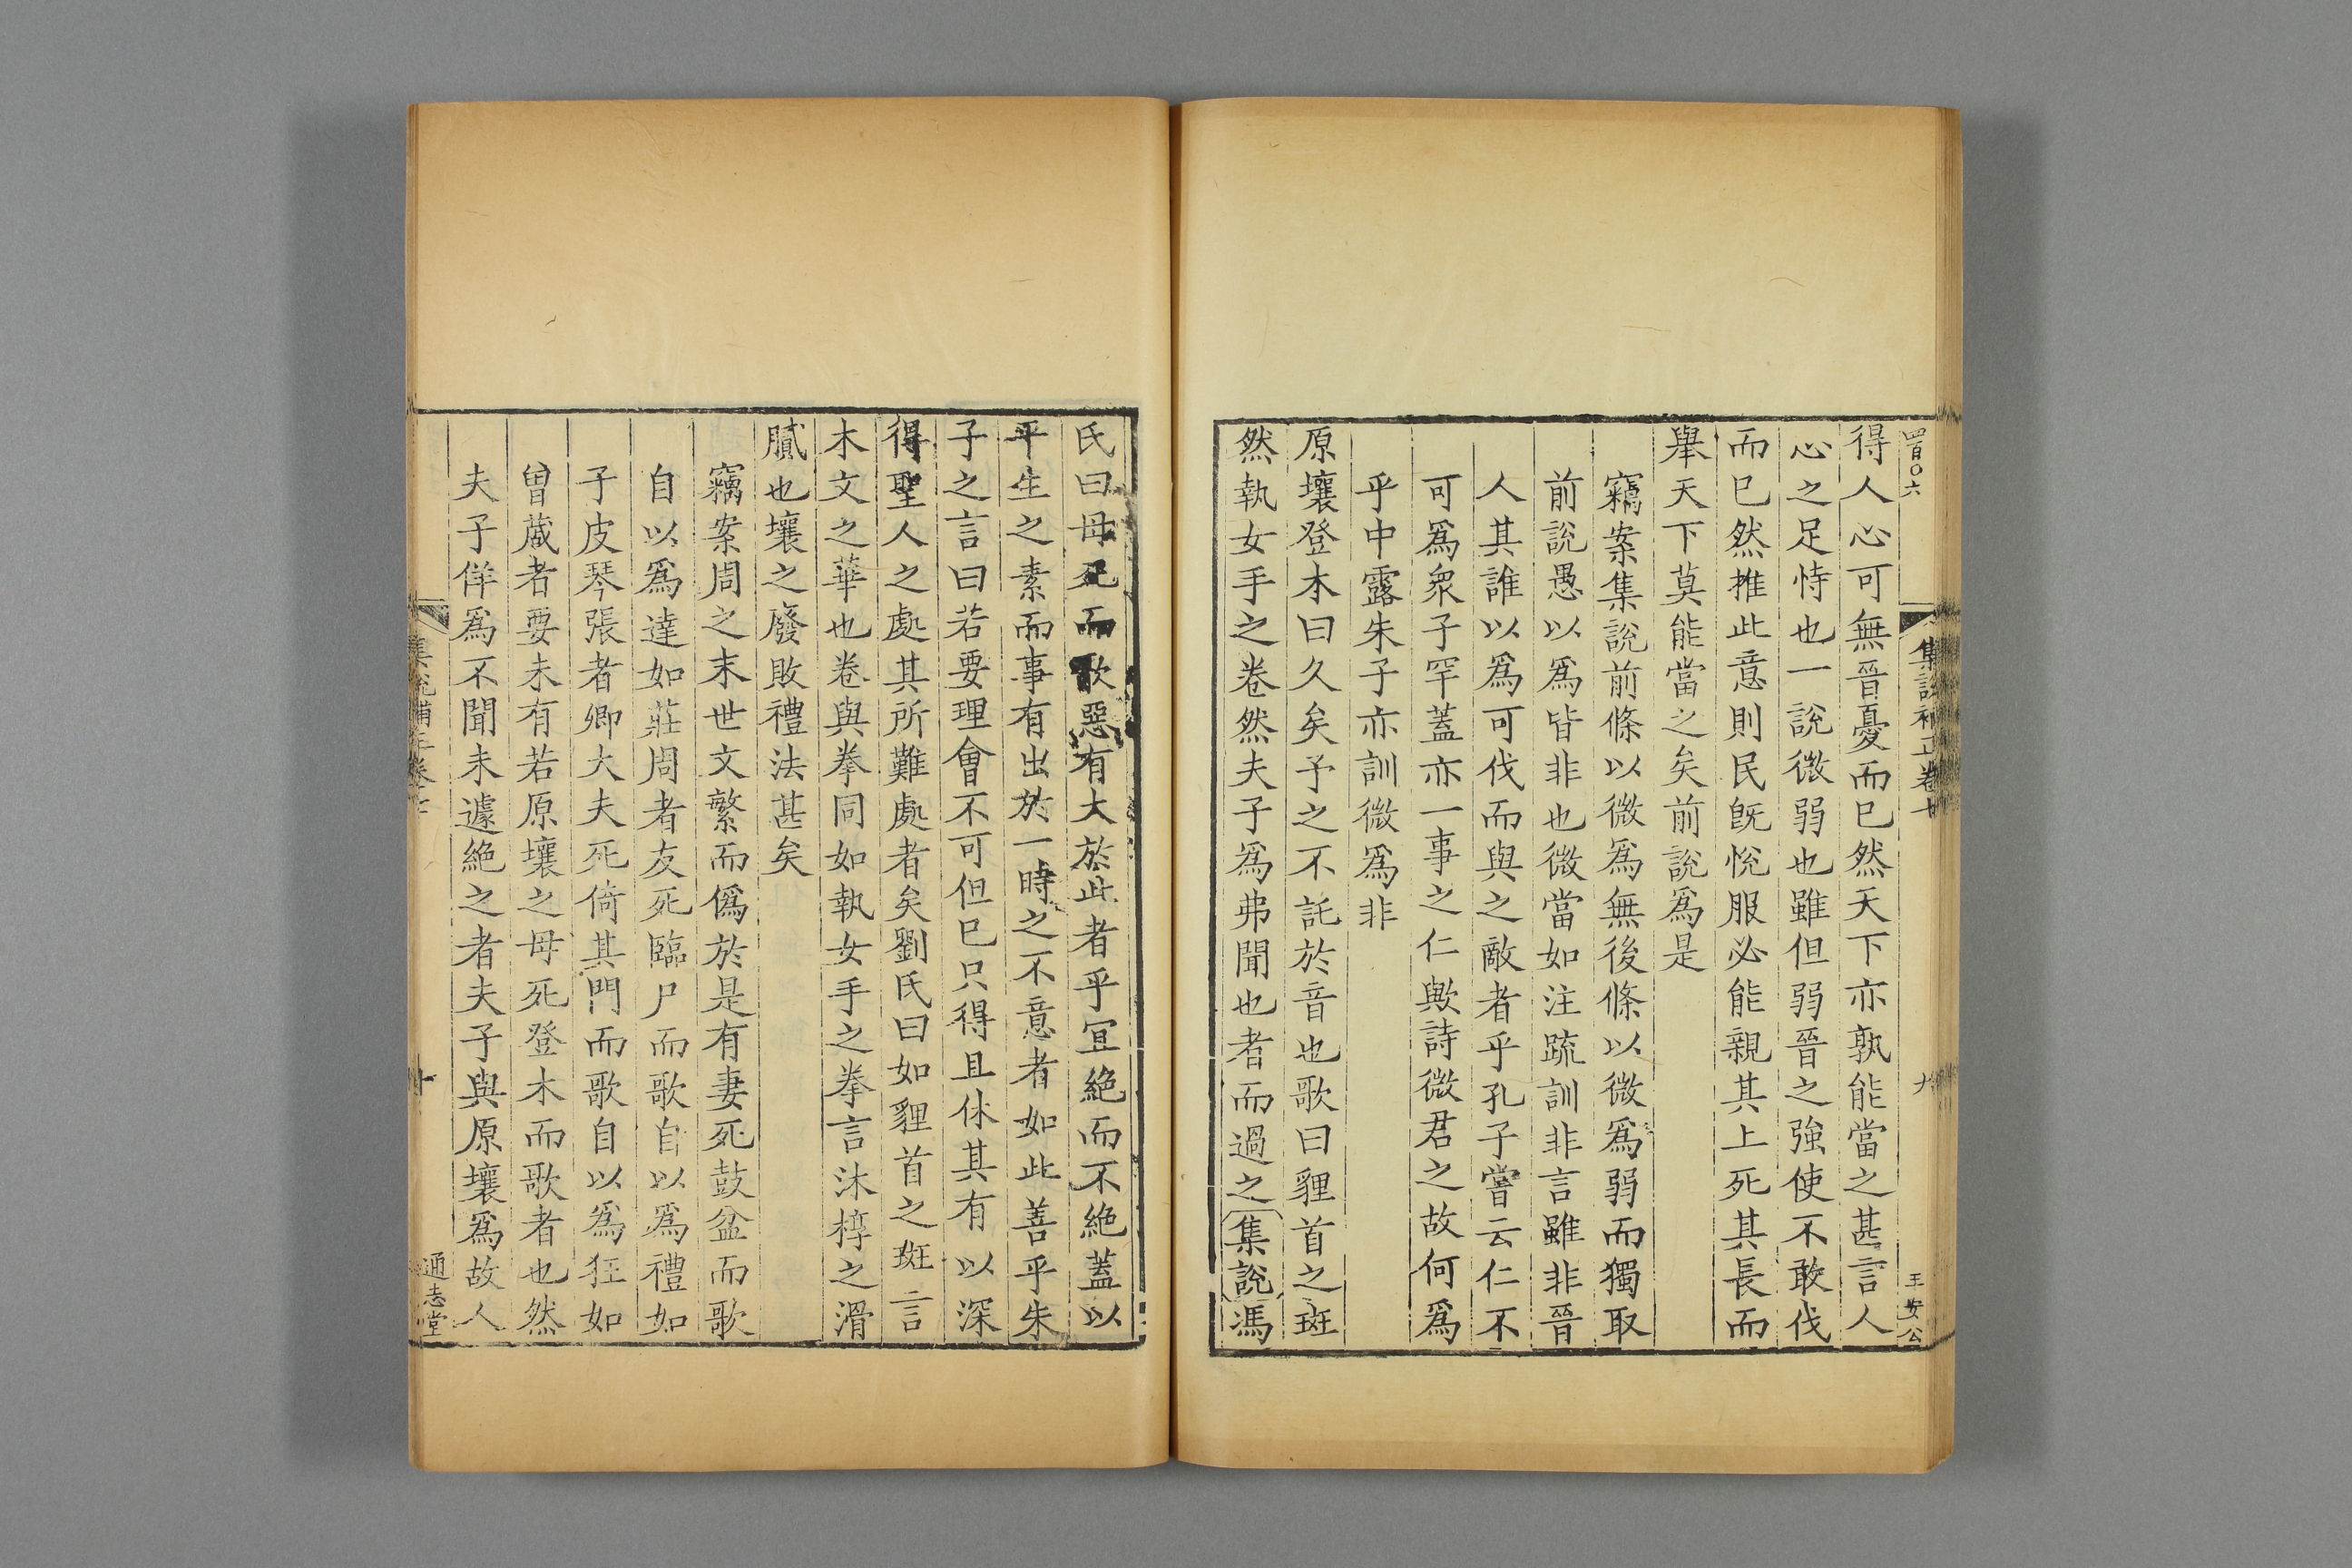 四百〇六
集說補正卷十
九
王安公
得人心可無晉憂而已然天下亦孰能當之甚言人
心之足恃也一說微弱也雖但弱晉之強使不敢伐
而已然推此意則民旣悅服必能親其上死其長而
舉天下莫能當之矣前說爲是
竊案集說前條以微爲無後條以微爲弱而獨取
前說愚以爲皆非也微當如注疏訓非言雖非晉
人其誰以爲可伐而與之敵者乎孔子嘗云仁不
可爲衆子罕蓋亦一事之仁歟詩微君之故何爲
乎中露朱子亦訓微爲非
原壤登木曰久矣予之不託於音也歌曰貍首之斑
然執女手之卷然夫子爲弗聞也者而過之集說馮
氏曰母死而歌惡有大於此者乎宜絕而不絕蓋以
平生之素而事有出於一時之不意者如此善乎朱
子之言曰若要理會不可但已只得且休其有以深
得聖人之處其所難處者矣劉氏曰如貍首之斑言
木文之華也卷與拳同如執女手之拳言沐椁之滑
膩也壤之廢敗禮法甚矣
竊案周之末世文繁而僞於是有妻死鼓盆而歌
自以爲達如莊周者友死臨尸而歌自以爲禮如
子皮琴張者卿大夫死倚其門而歌自以爲狂如
曾蒧者要未有若原壤之母死登木而歌者也然
夫子佯爲不聞未遽絕之者夫子與原壤爲故人
集說補正卷十
十
通志堂